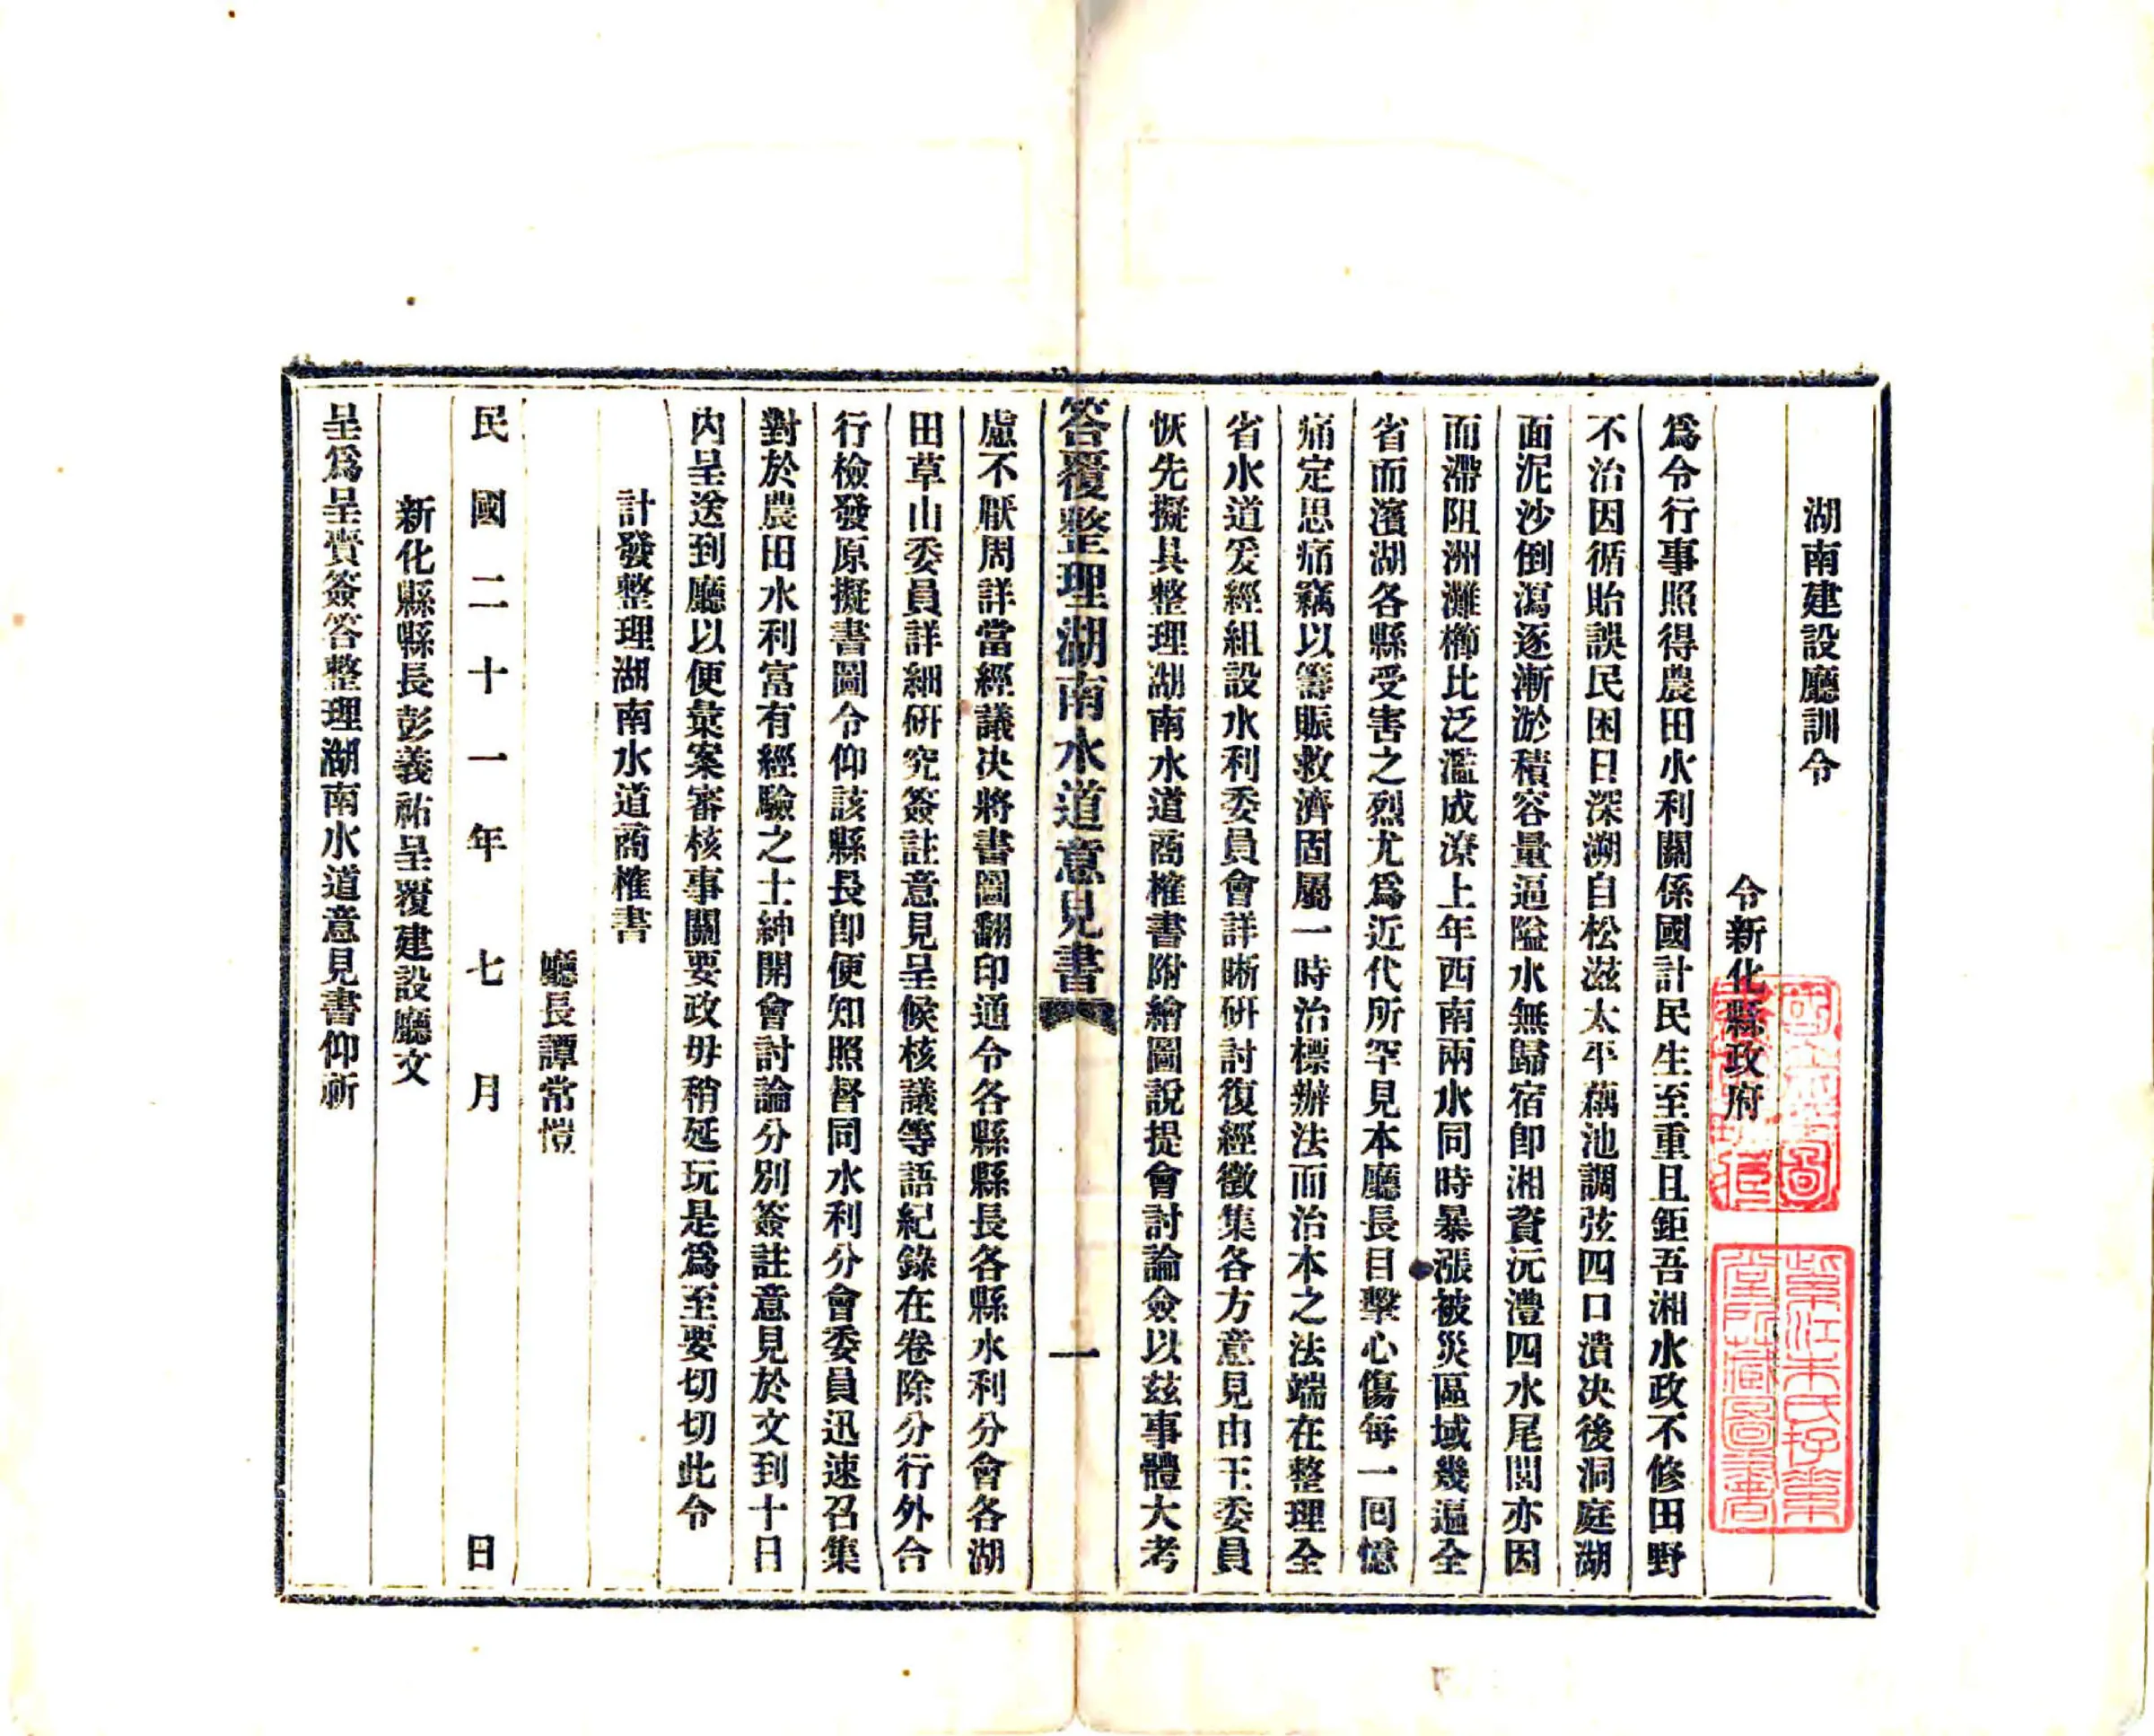 湖南建設廳訓令
令新化縣政府
爲令行事照得農田水利關係國計民生至重且鉅吾湘水政不修田野
不治因循貽誤民困日深溯自松滋太平藕池調弦四口潰決後洞庭湖
面泥沙倒瀉逐漸淤積容量逼隘水無歸宿卽湘資沅澧四水尾閭亦因
而滯阻洲灘櫛比泛濫成潦上年西南兩水同時暴漲被災區域幾遍全
省而濱湖各縣受害之烈尤爲近代所罕見本廳長目擊心傷每一回憶
痛定思痛竊以籌賑救濟固屬一時治標辦法而治本之法端在整理全
省水道爰經組設水利委員會詳晰研討復經徵集各方意見由王委員
恢先擬具整理湖南水道商榷書附繪圖說提會討論僉以茲事體大考
答覆整理湖南水道意見書
一
慮不厭周詳當經議决將書圖翻印通令各縣縣長各縣水利分會各湖
田草山委員詳細研究簽註意見呈候核議等語紀錄在卷除分行外合
行檢發原擬書圖令仰該縣長卽便知照督同水利分會委員迅速召集
對於農田水利富有經驗之士紳開會討論分別簽註意見於文到十日
內呈送到廳以便彙案審核事關要政毋稍延玩是爲至要切切此令
計發整理湖南水道商榷書
廳長譚常愷
民國二十一年七月日
新化縣縣長彭義祐呈覆建設廳文
呈爲呈賫簽答整理湖南水道意見書仰祈